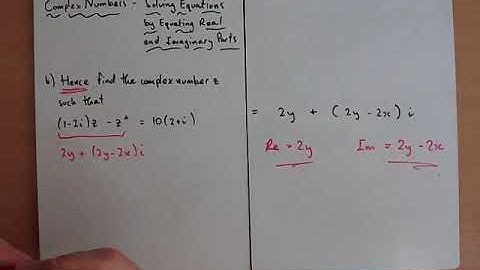 Complex Numbers - Solving Equations
by Equating Real
and Imaginary Parts
b) Hence find the complex number z
such that
(1-2i)z - z* = 10(2+i)
2y + (2y-2x)i
= 2y + (2y - 2x) i
Re = 2y Im = 2y - 2x